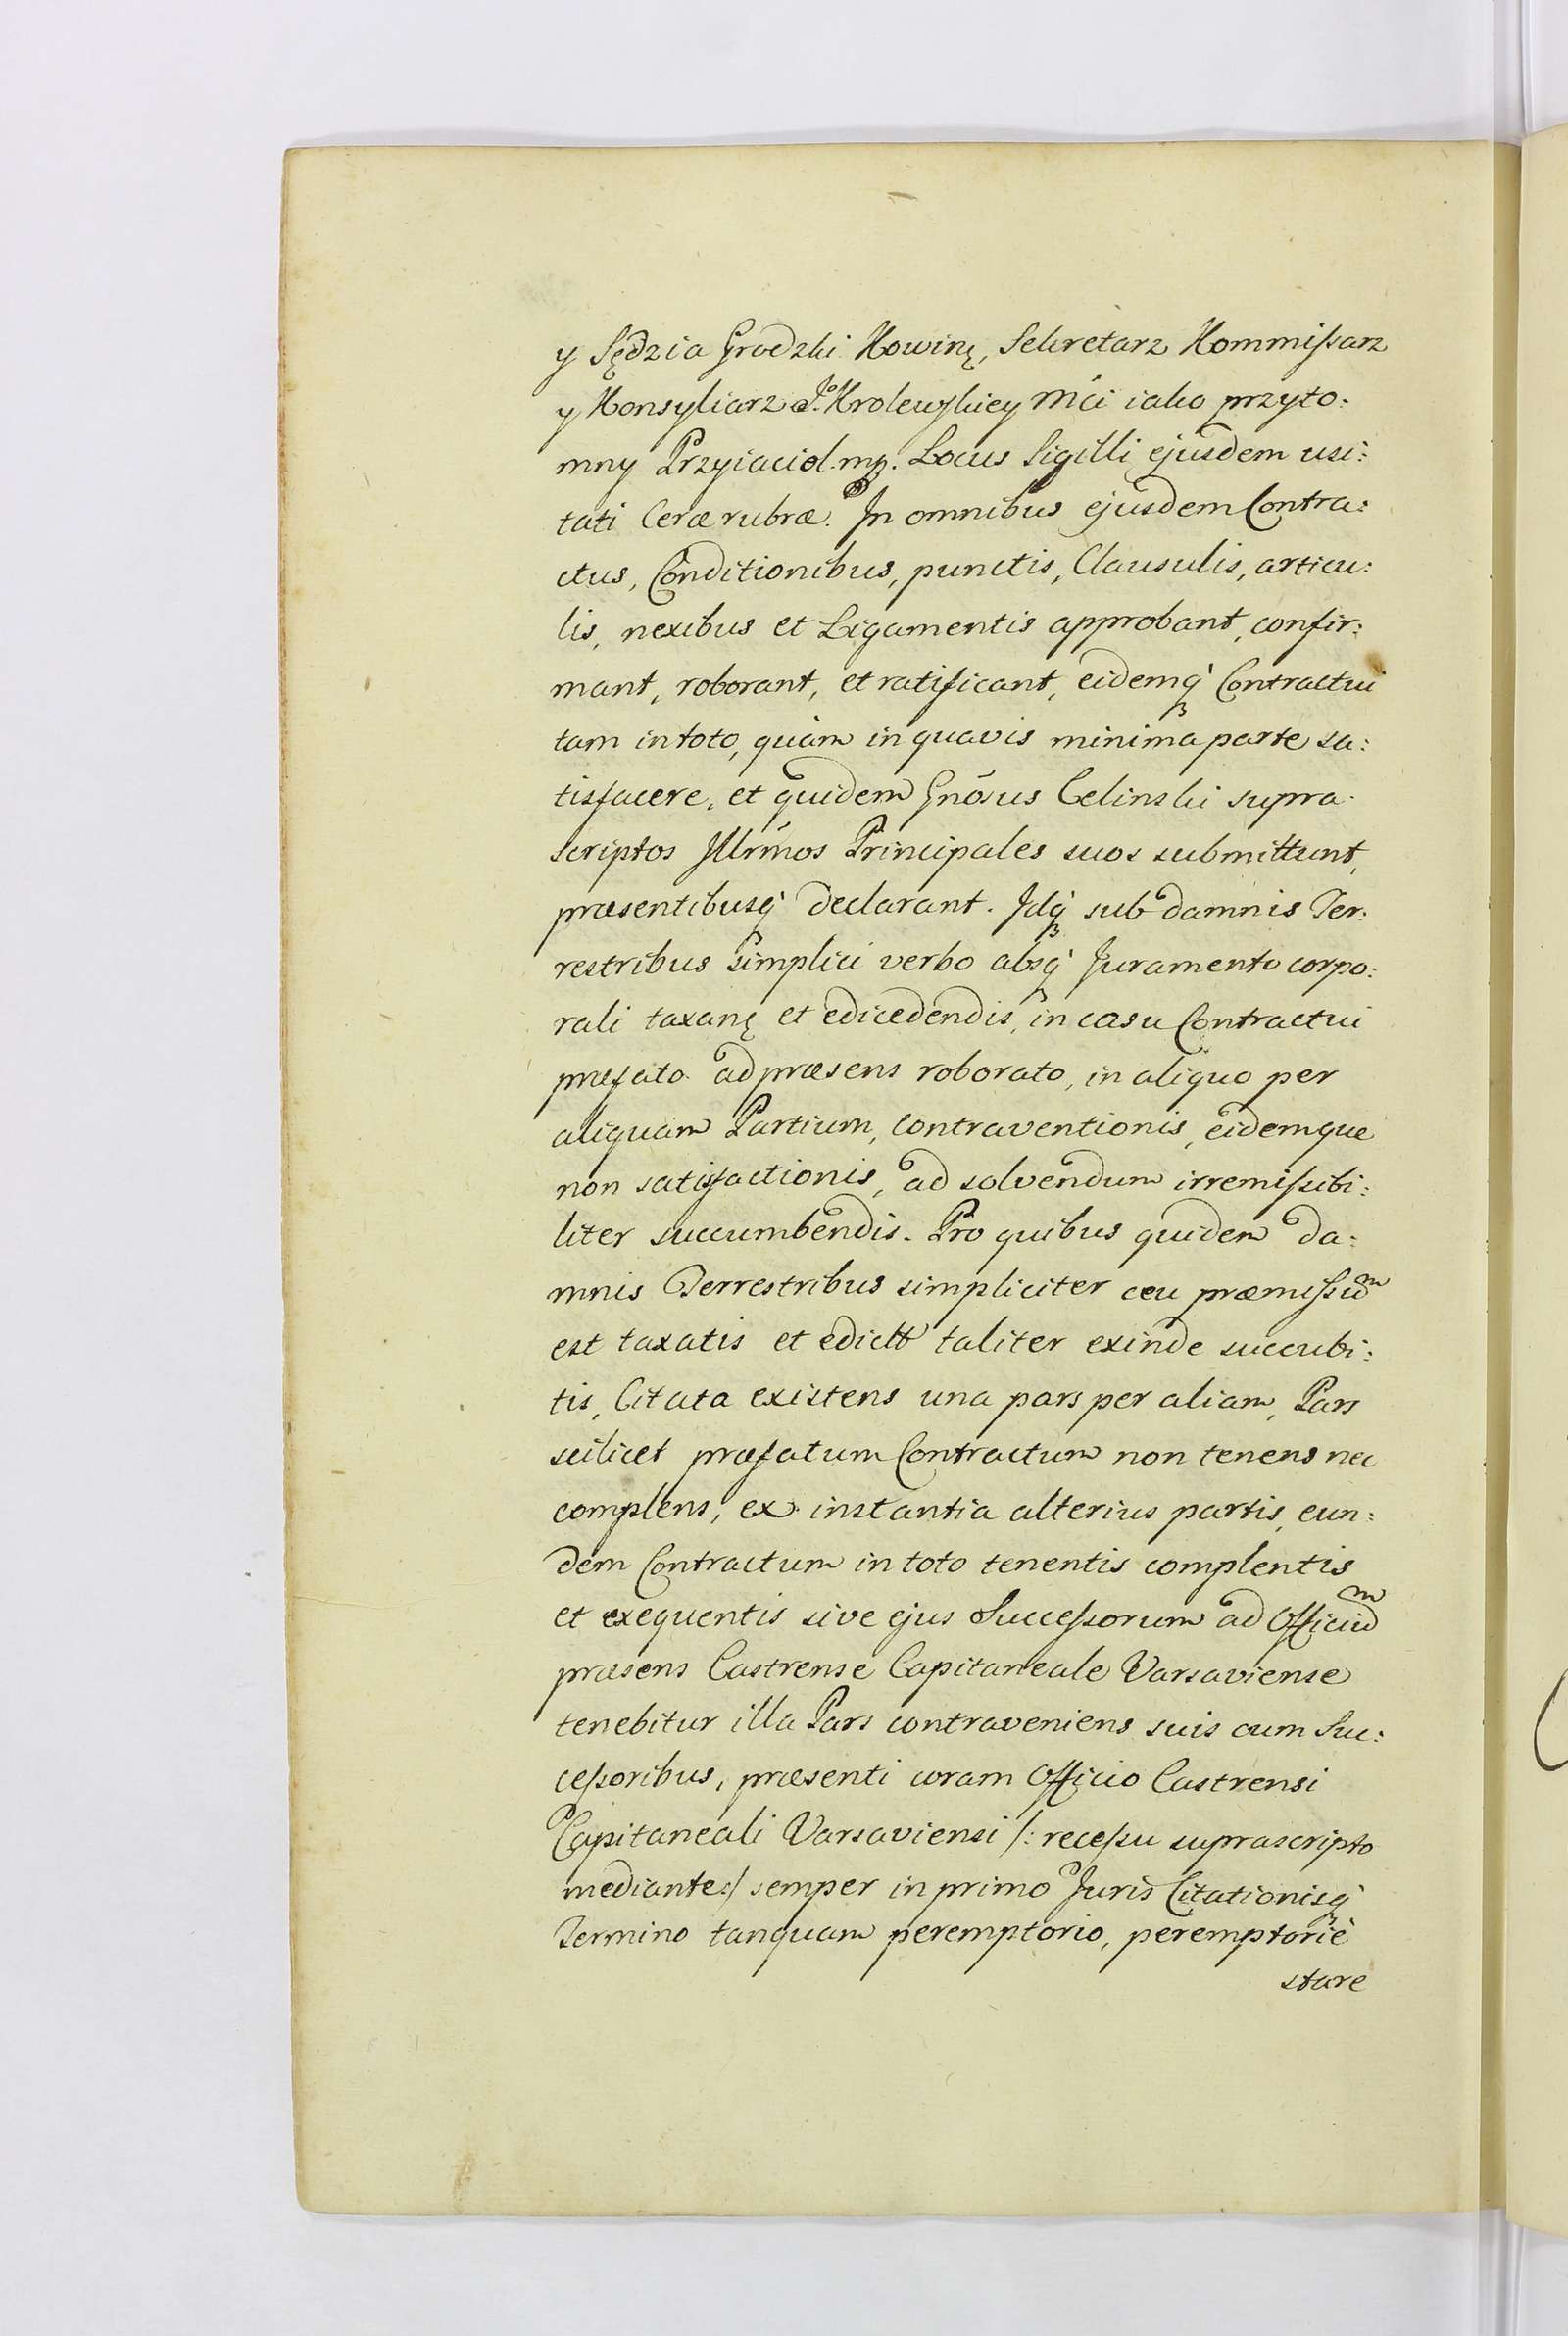 y Sędzia Grodzki Kowinę, Sekretarz Kommißarz
y Konsyliarz Jº Krolewskiey Mći iako przyto:
mny Przyiaciol. mp. Locus Sigilli ejusdem usi:
tati Ceræ rubræ. In omnibus ejusdem Contra:
ctus, Conditionibus, punctis, Clausulis, articu:
lis, nexibus et Ligamentis approbant, confir:
mant, roborant, et ratificant, eidemq́ Contractui
tam in toto, quàm in quavis minima parte sa:
tisfacere, et quidem Gnõsus Celinski supra
scriptos Illrm̃os Principales suos submittunt,
præsentibusq́ declarant. Idq́ sub damnis Ter:
restribus simplici verbo absq́ Juramento corpo:
rali taxanę et edicedendis, in casu Contractui
præfato ad præsens roborato, in aliquo per
aliquam Partium, contraventionis, eidemque
non satisfactionis, ad solvendum irremißibi:
liter succumbendis. Pro quibus quidem da:
mnis Terrestribus simpliciter ceu præmißũm
est taxatis et edictt taliter exinde succubi:
tis, Citata existens una pars per aliam, Pars
scilicet præfatum Contractum non tenens nec
complens, ex instantia alterius partis, eun:
dem Contractum in toto tenentis complentis
et exequentis sive ejus Succeßorum ad Officiũm
præsens Castrense Capitaneale Varsaviense
tenebitur illa Pars contraveniens suis cum Suc:
ceßoribus, præsenti coram Officio Castrensi
Capitaneali Varsaviensi /: receßu suprascripto
mediante :/ semper in primo Juris Citationisq́
Termino tanquam peremptorio, peremptoriè
stare